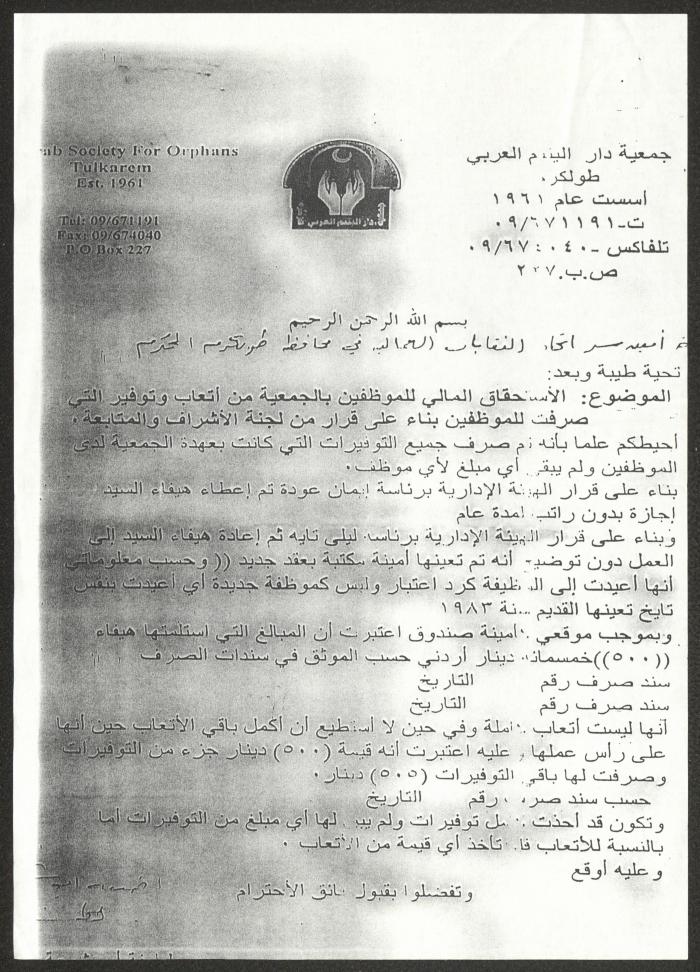 Society For Orphans
Tulkarem
Est. 1961
Tel: 09/671191
Fax: 09/674040
P.O Box 227
دار اليتيم العربي
جمعية دار اليتيم العربي
طولكرم
أسست عام ١٩٦١
ت-٠٩/٦٧١١٩١
تلفاكس -٠٩/٦٧٤٠٤٠
ص.ب.٢٢٧
بسم الله الرحمن الرحيم
أمين سر اتحاد النقابات العمالية في محافظة طولكرم المحترم
تحية طيبة وبعد:
الموضوع: الأستحقاق المالي للموظفين بالجمعية من أتعاب وتوفير التي
صرفت للموظفين بناء على قرار من لجنة الأشراف والمتابعة .
أحيطكم علما بأنه تم صرف جميع التوفيرات التي كانت بعهدة الجمعية لدى
الموظفين ولم يبقى أي مبلغ لأي موظف.
بناء على قرار الهيئة الإدارية برئاسة إيمان عودة تم إعطاء هيفاء السيد
إجازة بدون راتب لمدة عام
وبناء على قرار الهيئة الإدارية برئاسة ليلى تايه ثم إعادة هيفاء السيد إلى
العمل دون توضيح أنه تم تعينها أمينة مكتبة بعقد جديد (( وحسب معلوماتي
أنها أعيدت إلى الوظيفة كرد اعتبار وليس كموظفة جديدة أي أعيدت بنفس
تايخ تعينها القديم سنة ١٩٨٣
وبموجب موقعي كأمينة صندوق اعتبرت أن المبالغ التي استلمتها هيفاء
((٥٠٠))خمسمائة دينار أردني حسب الموثق في سندات الصرف
سند صرف رقم التاريخ
سند صرف رقم التاريخ
أنها ليست أتعاب كاملة وفي حين لا أستطيع أن أكمل باقي الأتعاب حين أنها
على رأس عملها وعليه اعتبرت أنه قيمة (٥٠٠) دينار جزء من التوفيرات
وصرفت لها باقي التوفيرات (٥٠٥) دينار.
حسب سند صرف رقم التاريخ
وتكون قد أخذت كامل توفيرات ولم يبقى لها أي مبلغ من التوفيرات أما
بالنسبة للأتعاب فلم تأخذ أي قيمة من الأتعاب .
وعليه أوقع
وتفضلوا بقبول فائق الأحترام